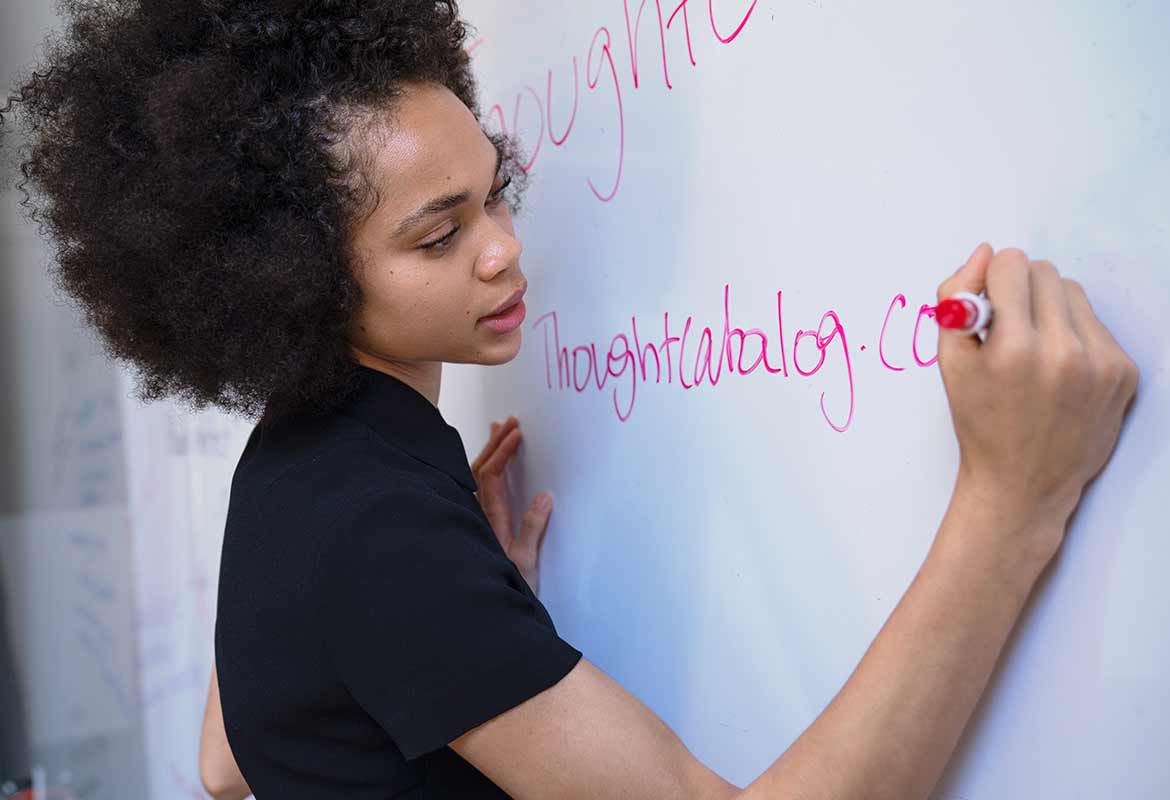 ought C
Thoughtcatalog.co